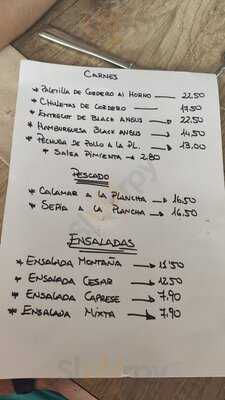 CARNES
* PALETILLA DE CORDERO AL HORNO — 22,50
* CHULETAS DE CORDERO — 17,50
* ENTRECOT DE BLACK ANGUS → 22,50
* HAMBURGUESA BLACK ANGUS → 14,50
* PECHUGA DE POLLO A LA PL. → 13,00
* SALSA PIMIENTA → 2.80
PESCADO
* CALAMAR A LA PLANCHA → 16,50
* SEPIA A LA PLANCHA → 16,50
ENSALADAS
* ENSALADA MONTAÑA → 11'50
* ENSALADA CESAR → 12,50
* ENSALADA CAPRESE → 7,90
* ENSALADA MIXTA → 7,90